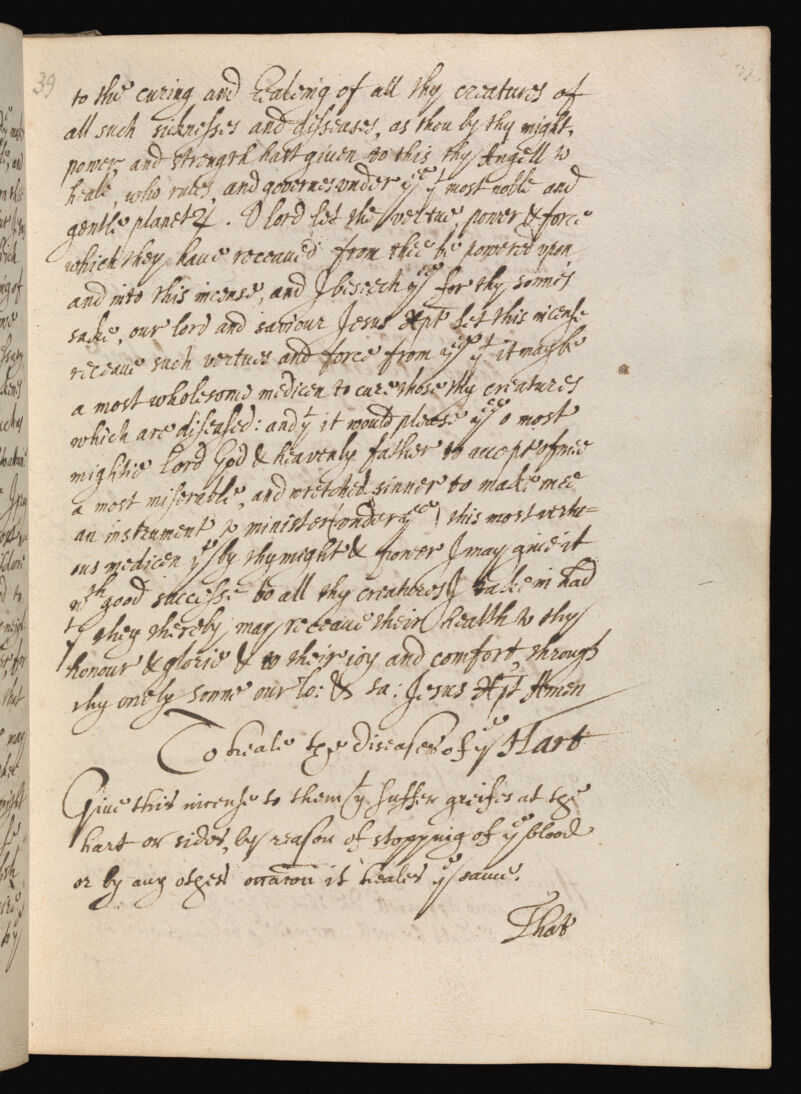 39
to the curing and healeing of all thy creatures of
all such sicknesses and diseases, as thou by thy might,
power, and strength hast given to this thy Angell to
heale, who rules, and governes under yee yt most noble and
gentle planet ♃. O lord let the vertue, power & force
which they have receaved from thee be powered upon
and into this incense, and I beseech yee for thy sonnes
sake, our lord and saviour Jesus Xpt let this incense
receave such vertues and force from yee yt it may be
a most wholesome medicen to cure those thy creatures
which are diseased: and yt it would please yee o most
mightie Lord God & heavenly father to accept of mee
a most miserable, and wretched sinner to make mee
an instrument to minister (under yee) this most vertu=
ous medicen yt by thy might & power I may give it
wth good successe to all thy creatures I take in hād
yt they thereby may receave their health to thy
honour & glorie & to their ioy and comfort, through
thy onely sonne our lo: & sa: Jesus Xpt Amen
To heale the diseases of ye Hart
Give this incense to them yt suffer greifes at the
hart or sides, by reason of stopping of ye blood
or by any other occation it heales ye same.
That